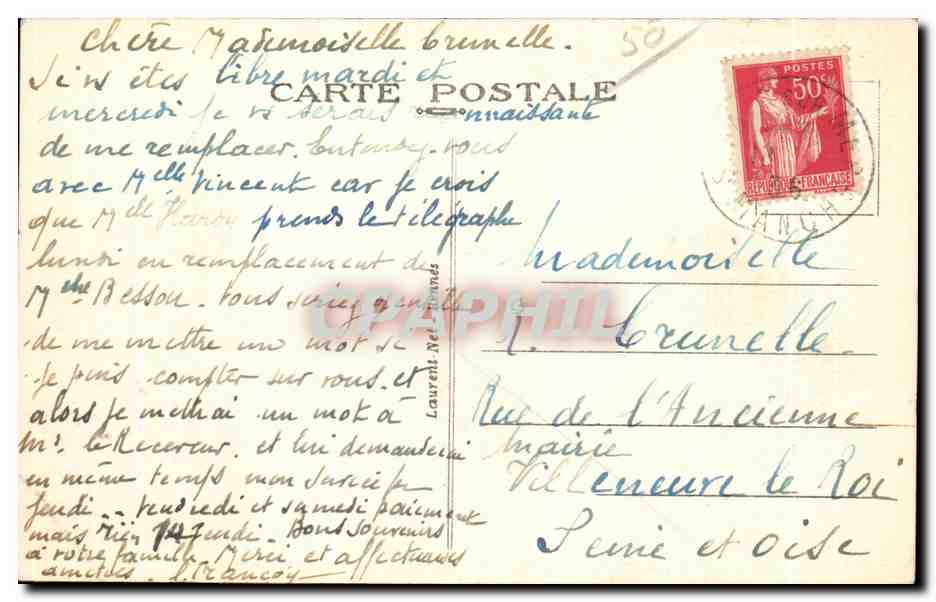 Chère Mademoiselle Crunelle.
Si vs êtes libre mardi et
mercredi je vs serais connaissante
de me remplacer. Entendez-vous
avec Melle Vincent car je crois
que Melle Hardy prends le télégraphe
lundi en remplacement de
Mme Besson. Vous seriez gentille
de me mettre un mot si
je puis compter sur vous. et
alors je mettrai un mot à
Mr. le Receveur. et lui demanderai
en même temps mon service pr
jeudi.. vendredi et samedi paiement
mais rien jeudi. Bons souvenirs
à votre famille Merci et affectueuses
amitiés.
CARTE POSTALE
50
POSTES
50c
RÉPUBLIQUE FRANÇAISE
MANCHE
Laurent-Nel Rennes
CPAPHIL
Mademoiselle
Crunelle.
Rue de l'Ancienne
mairie
Villeneuve le Roi
Seine et Oise